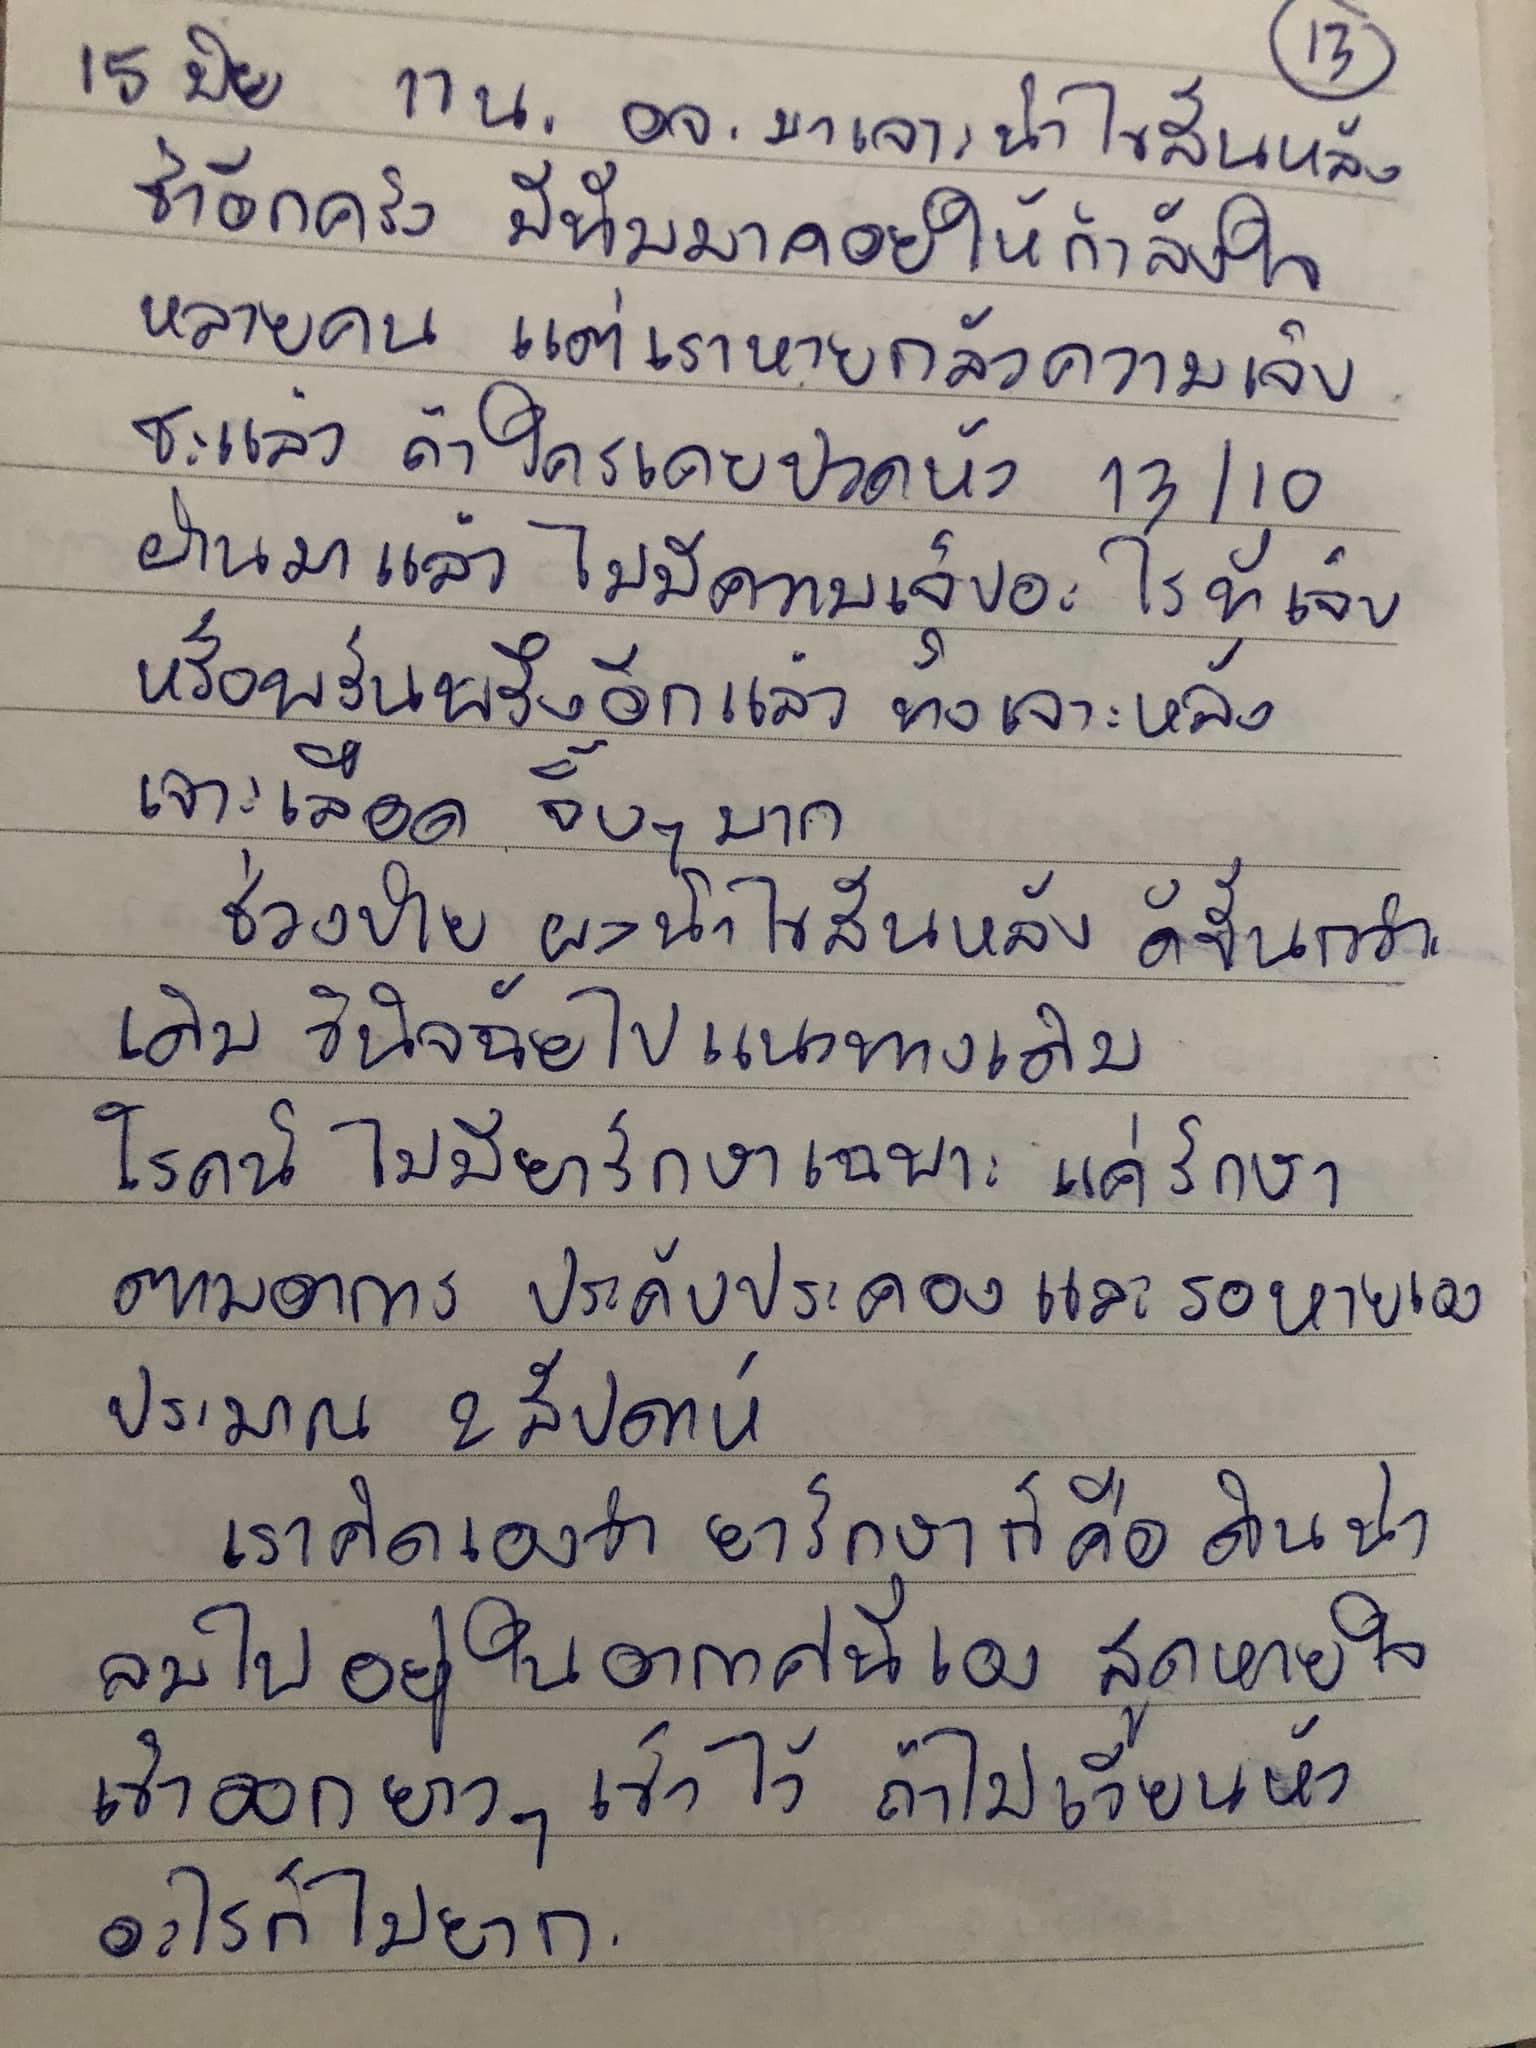 13
15 มิย 11 น. อจ. มาเจาะน้ำไขสันหลัง
ซ้ำอีกครั้ง มีทีมมาคอยให้กำลังใจ
หลายคน แต่เราหายกลัวความเจ็บ
ซะแล้ว ถ้าใครเคยปวดหัว 13/10
ผ่านมาแล้ว ไม่มีความเจ็บอะไรที่เจ็บ
หรือพรั่นพรึงอีกแล้ว ทั้งเจาะหลัง
เจาะเลือด จิ๊บๆ มาก
ช่วงบ่าย ผลน้ำไขสันหลัง ดีขึ้นกว่า
เดิม วินิจฉัยไปแนวทางเดิม
โรคนี้ ไม่มียารักษาเฉพาะ แค่รักษา
ตามอาการ ประคับประคองและรอหายเอง
ประมาณ 2 สัปดาห์
เราคิดเองว่า ยารักษาก็คือ ดินน้ำ
ลมไฟ อยู่ในอากาศนี่เอง สูดหายใจ
เข้าออกยาวๆ เข้าไว้ ถ้าไม่เวียนหัว
อะไรก็ไม่ยาก.